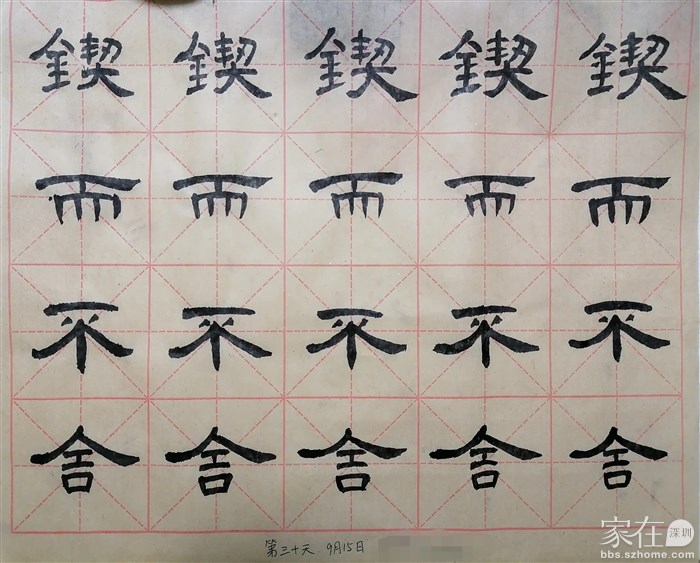 鍥鍥鍥鍥鍥
而而而而而
不不不不不
舍舍舍舍舍
第三十天 9月15日
家在深圳
bbs.szhome.com